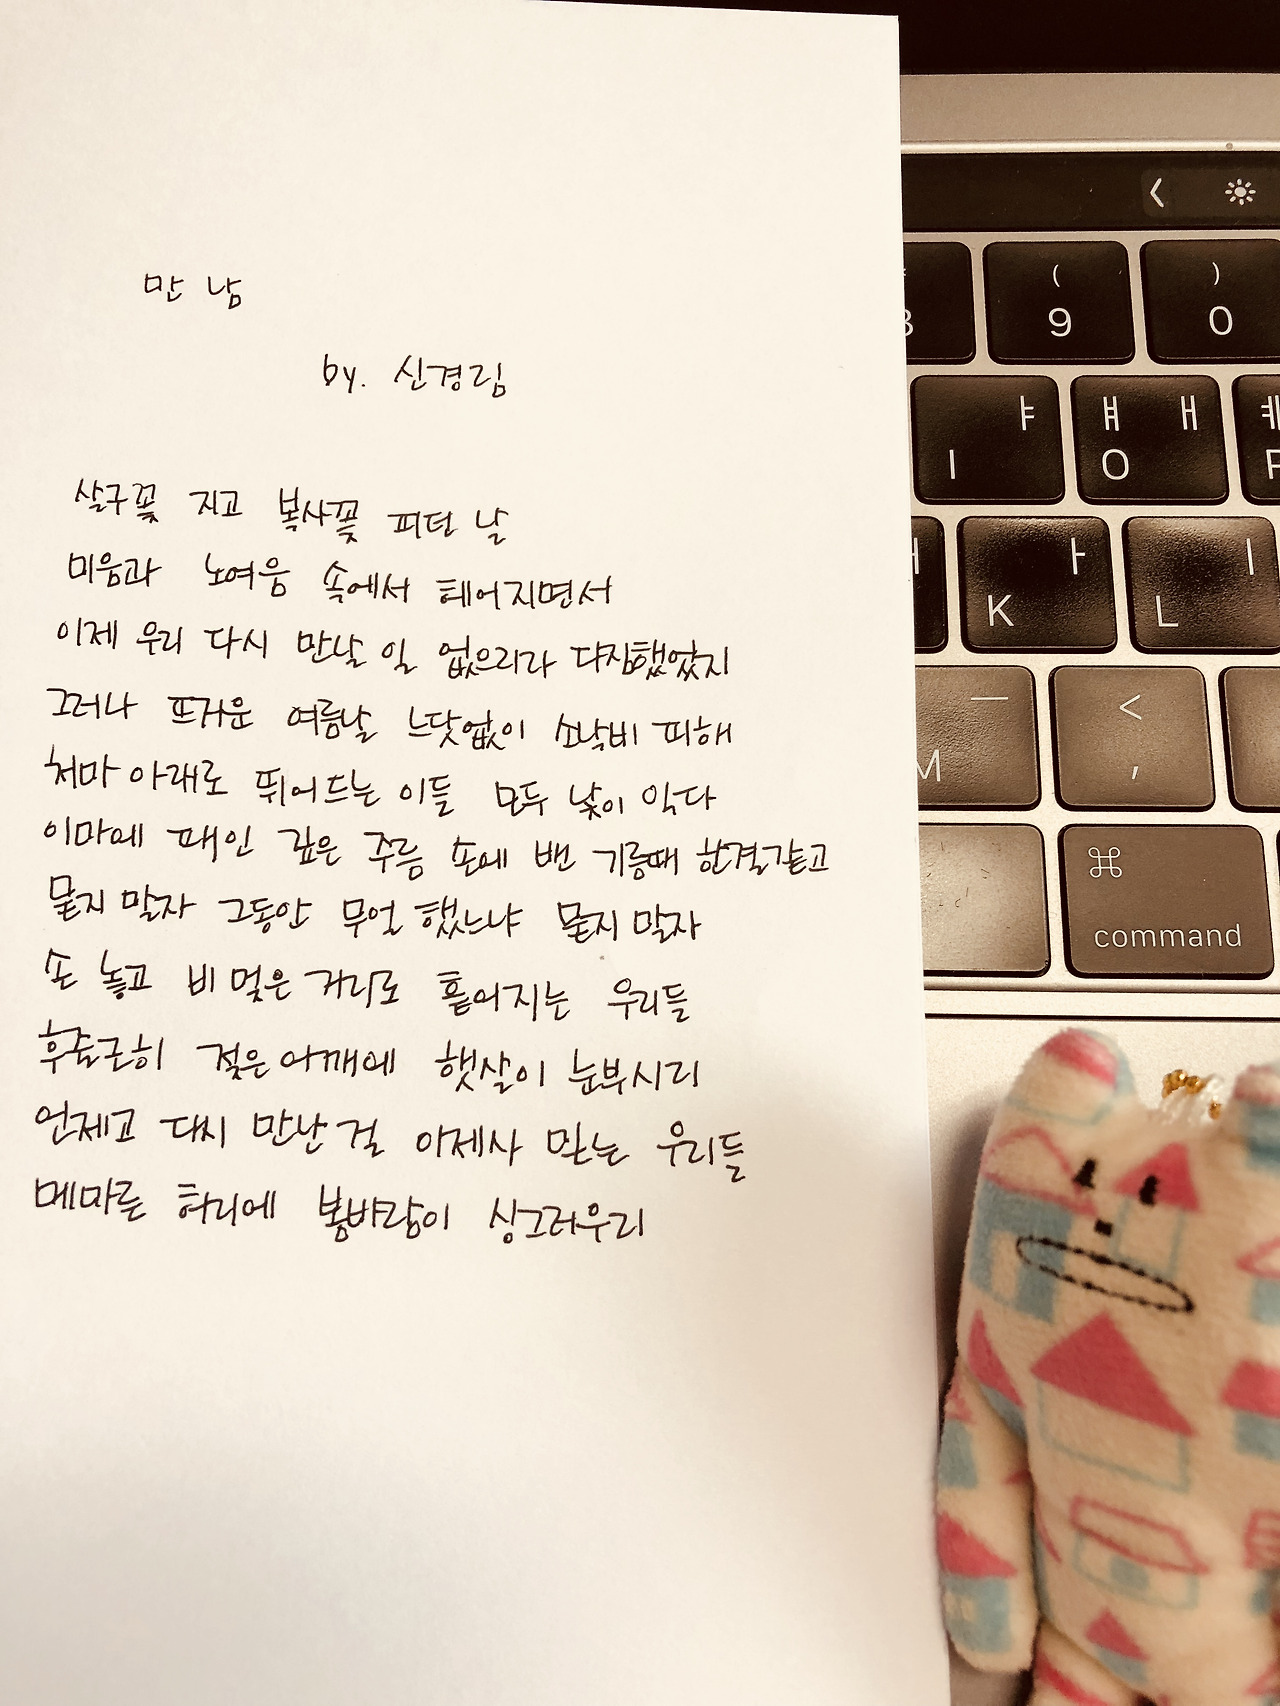 만남
by. 신경림
살구꽃 지고 복사꽃 피던 날
미움과 노여움 속에서 헤어지면서
이제 우리 다시 만날 일 없으리라 다짐했었지
그러나 뜨거운 여름날 느닷없이 소낙비 피해
처마 아래로 뛰어드는 이들 모두 낯이 익다
이마에 패인 깊은 주름 손에 밴 기름때 한결같고
묻지 말자 그동안 무얼 했느냐 묻지 말자
손 놓고 비 멎은 거리로 흩어지는 우리들
후줄근히 젖은 어깨에 햇살이 눈부시리
언제고 다시 만난 걸 이제사 믿는 우리들
메마른 허리에 봄바람이 싱그러우리
( 9
) 0
ㅑ I
ㅒ ㅐ O
ㅏ K
ㅣ L
ㅡ M
< ,
⌘ command